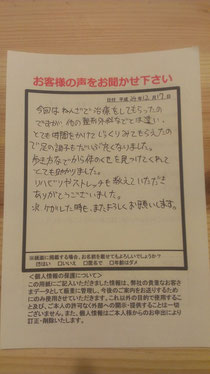 お客様の声をお聞かせ下さい
日付 平成29年12月17日
今回はねんざで治療をしてもらったの
ですが、他の整形外科などとは違い、
とても時間をかけてじっくりみてもらえたの
で足の調子もだいぶ良くなりました。
歩き方などから体のくせを見つけてくれて
とても助かりました。
リハビリやストレッチも教えていただき
ありがとうございました。
又ケガした時も、またよろしくお願いします。
※紙面に掲載する場合、お名前を載せてもよろしいでしょうか?
はい □いいえ □匿名で □年齢はダメ
<個人情報の保護について>
この用紙にご記入いただきました情報は、弊社の貴重なお客さ
まデータとして厳重に管理し、今後のご案内をお送りするため
にのみ使用させていただきます。これ以外の目的で使用するこ
と及び、ご本人の許可なく外部への開示・提供することは一切
ございません。また、個人情報はご本人様からのお申出により
訂正・削除いたします。